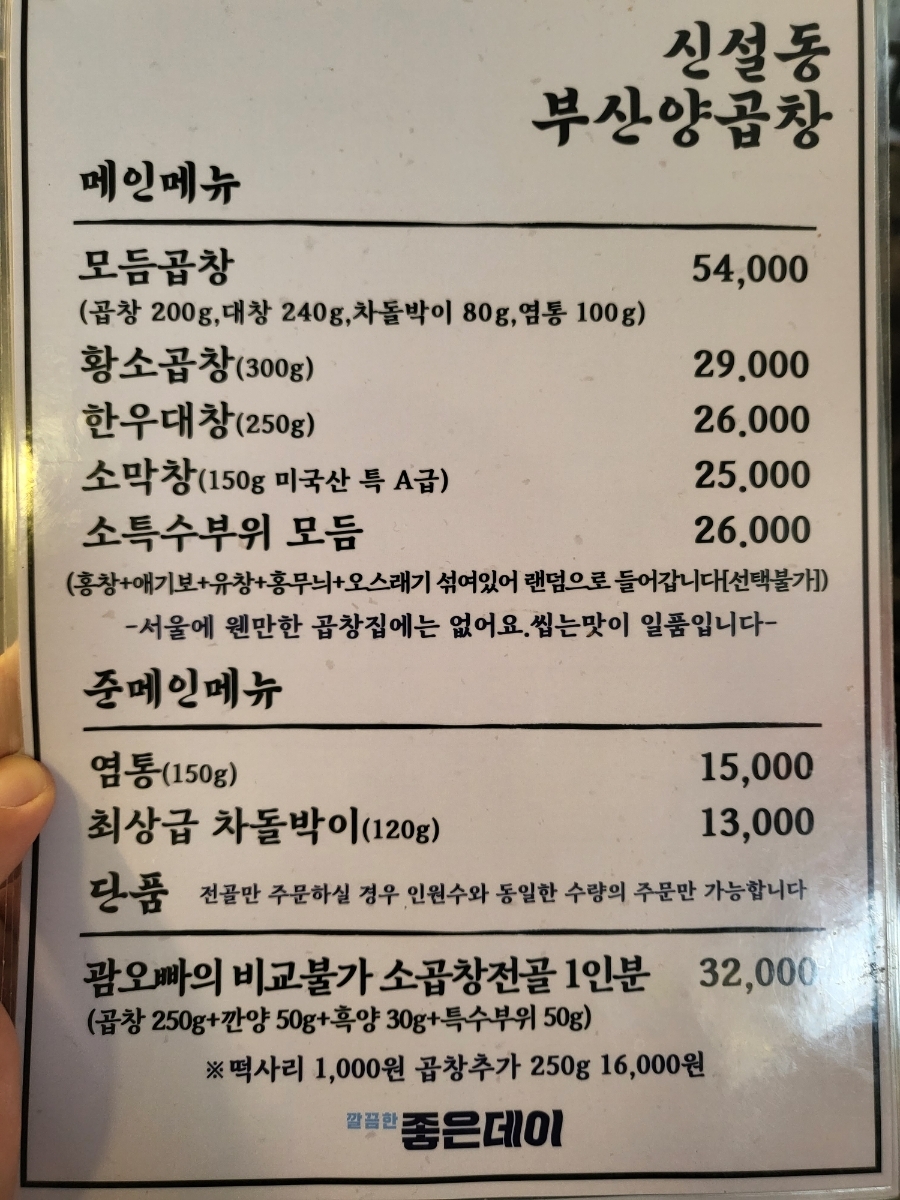 신설동
부산양곱창
메인메뉴
모듬곱창 54,000
(곱창 200g,대창 240g,차돌박이 80g,염통 100g)
황소곱창(300g) 29.000
한우대창(250g) 26.000
소막창(150g 미국산 특 A급) 25.000
소특수부위 모듬 26.000
(홍창+애기보+유창+홍무늬+오스래기 섞여있어 랜덤으로 들어갑니다[선택불가])
-서울에 웬만한 곱창집에는 없어요.씹는맛이 일품입니다-
준메인메뉴
염통(150g) 15,000
최상급 차돌박이(120g) 13,000
단품 전골만 주문하실 경우 인원수와 동일한 수량의 주문만 가능합니다
괌오빠의 비교불가 소곱창전골 1인분 32,000
(곱창 250g+깐양 50g+흑양 30g+특수부위 50g)
※떡사리 1,000원 곱창추가 250g 16,000원
깔끔한 좋은데이